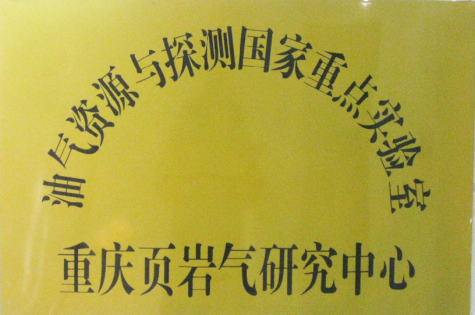 油气资源与探测国家重点实验室
重庆页岩气研究中心